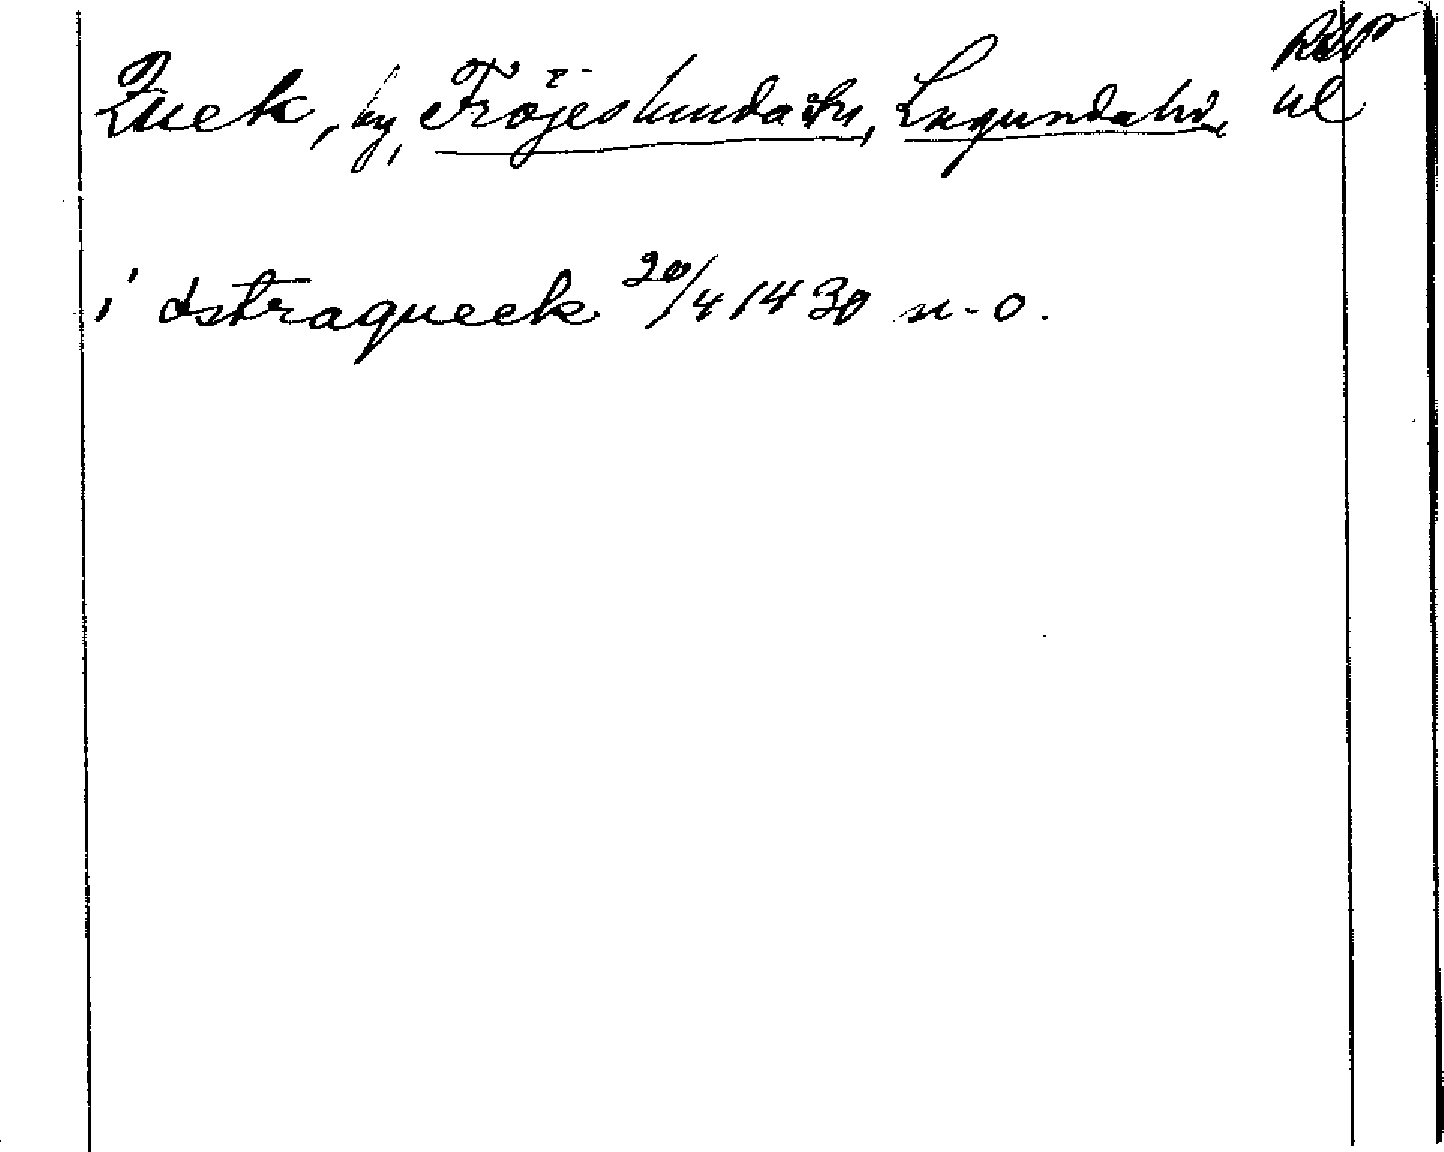 Quek, by, Fröjeslunda sn, Lagundahd, Upl
i østraqueek 20/4 1430 n-o.